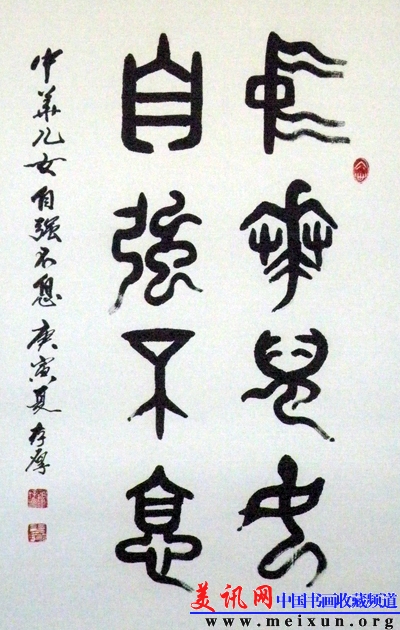 中華兒女
自強不息
中華儿女自强不息庚寅夏存
美讯网中国书画收藏频道
www.meixun.org